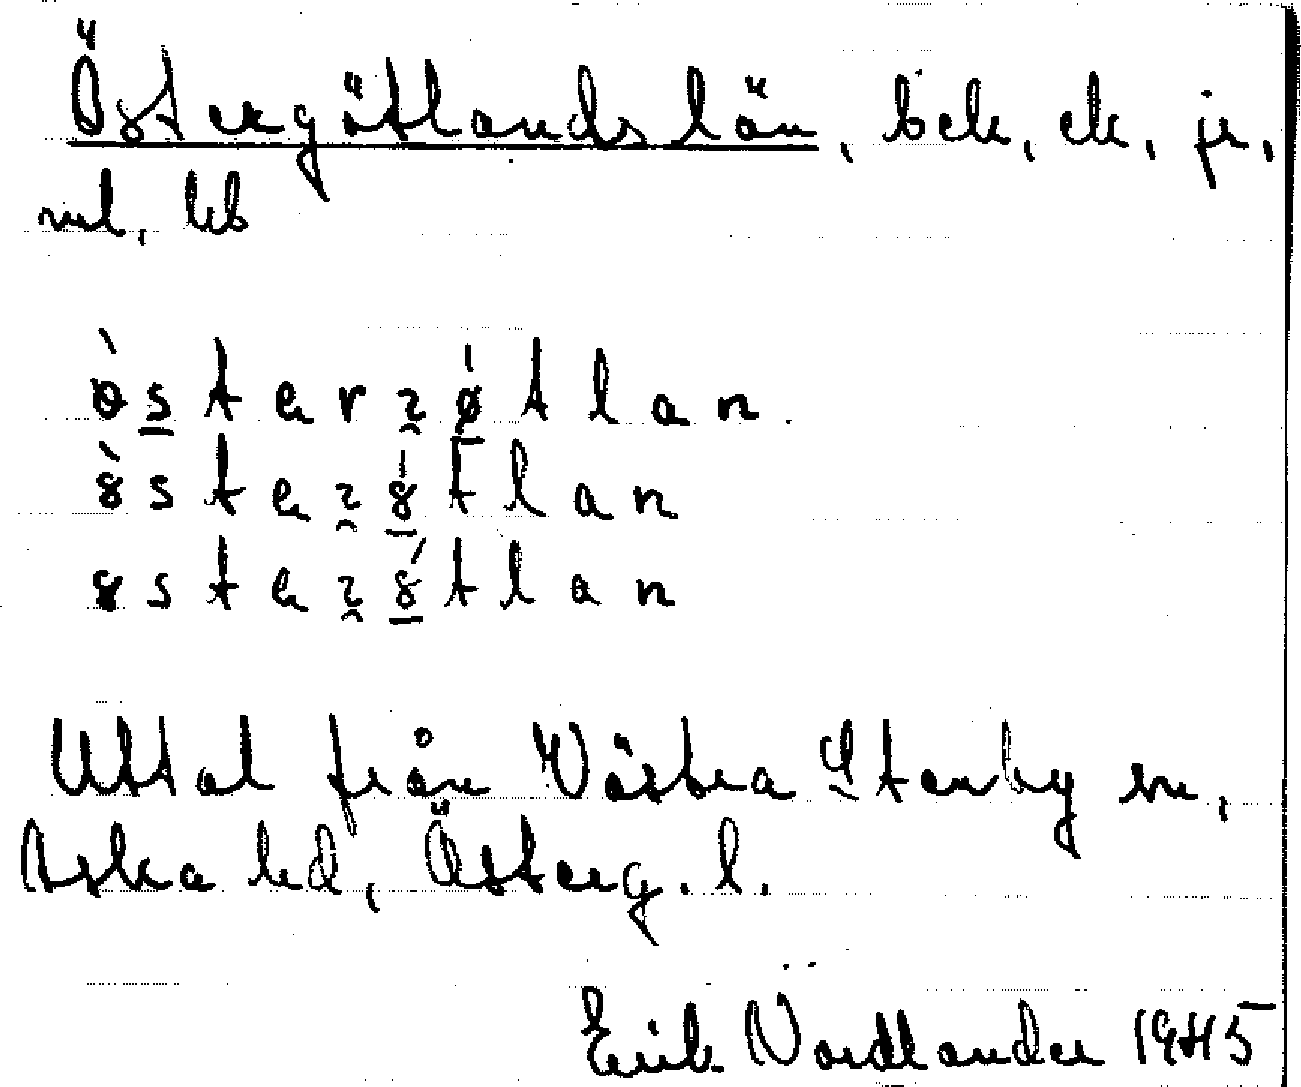 Östergötlands län, bek, ek, jr,
ml, kb
ò̈sterʒøtlan
8̀steʒ8tlan
8steʒ8́tlan
Uttal från Västra Stenby sn,
Aska hd, Österg. l.
Erik Nordlander 1945